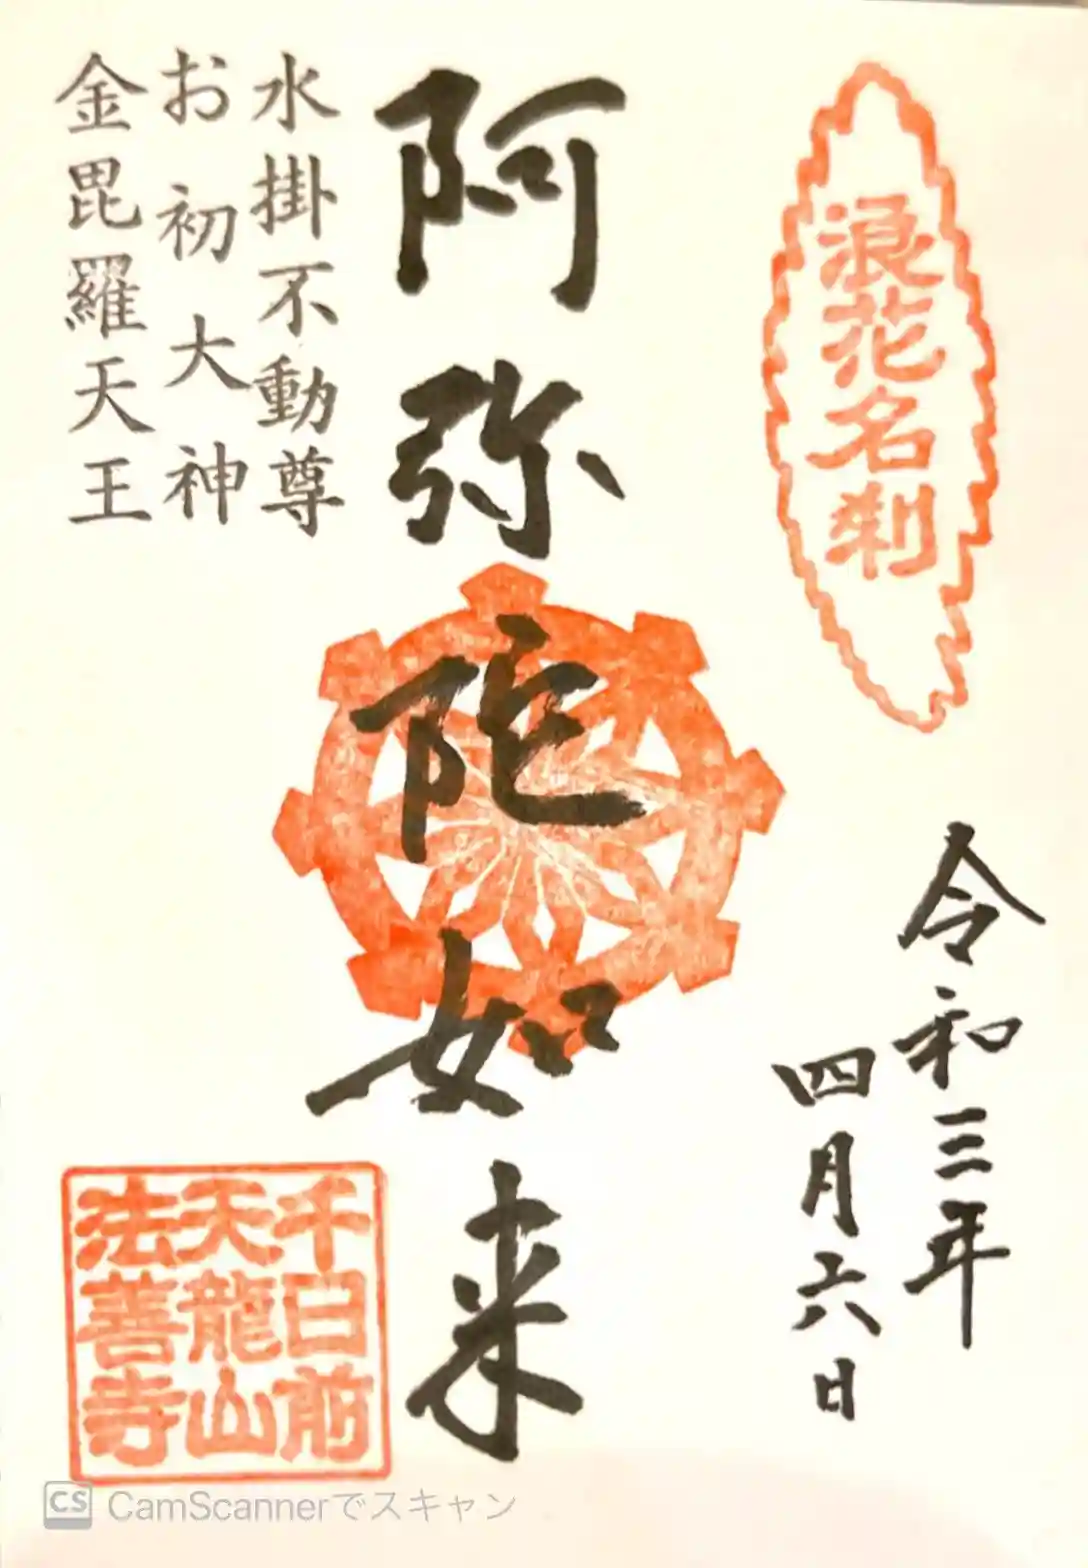 浪花名刹
令和三年
四月六日
阿弥陀如来
水掛不動尊
お初大神
金毘羅天王
千日前
天龍山
法善寺
CS CamScannerでスキャン